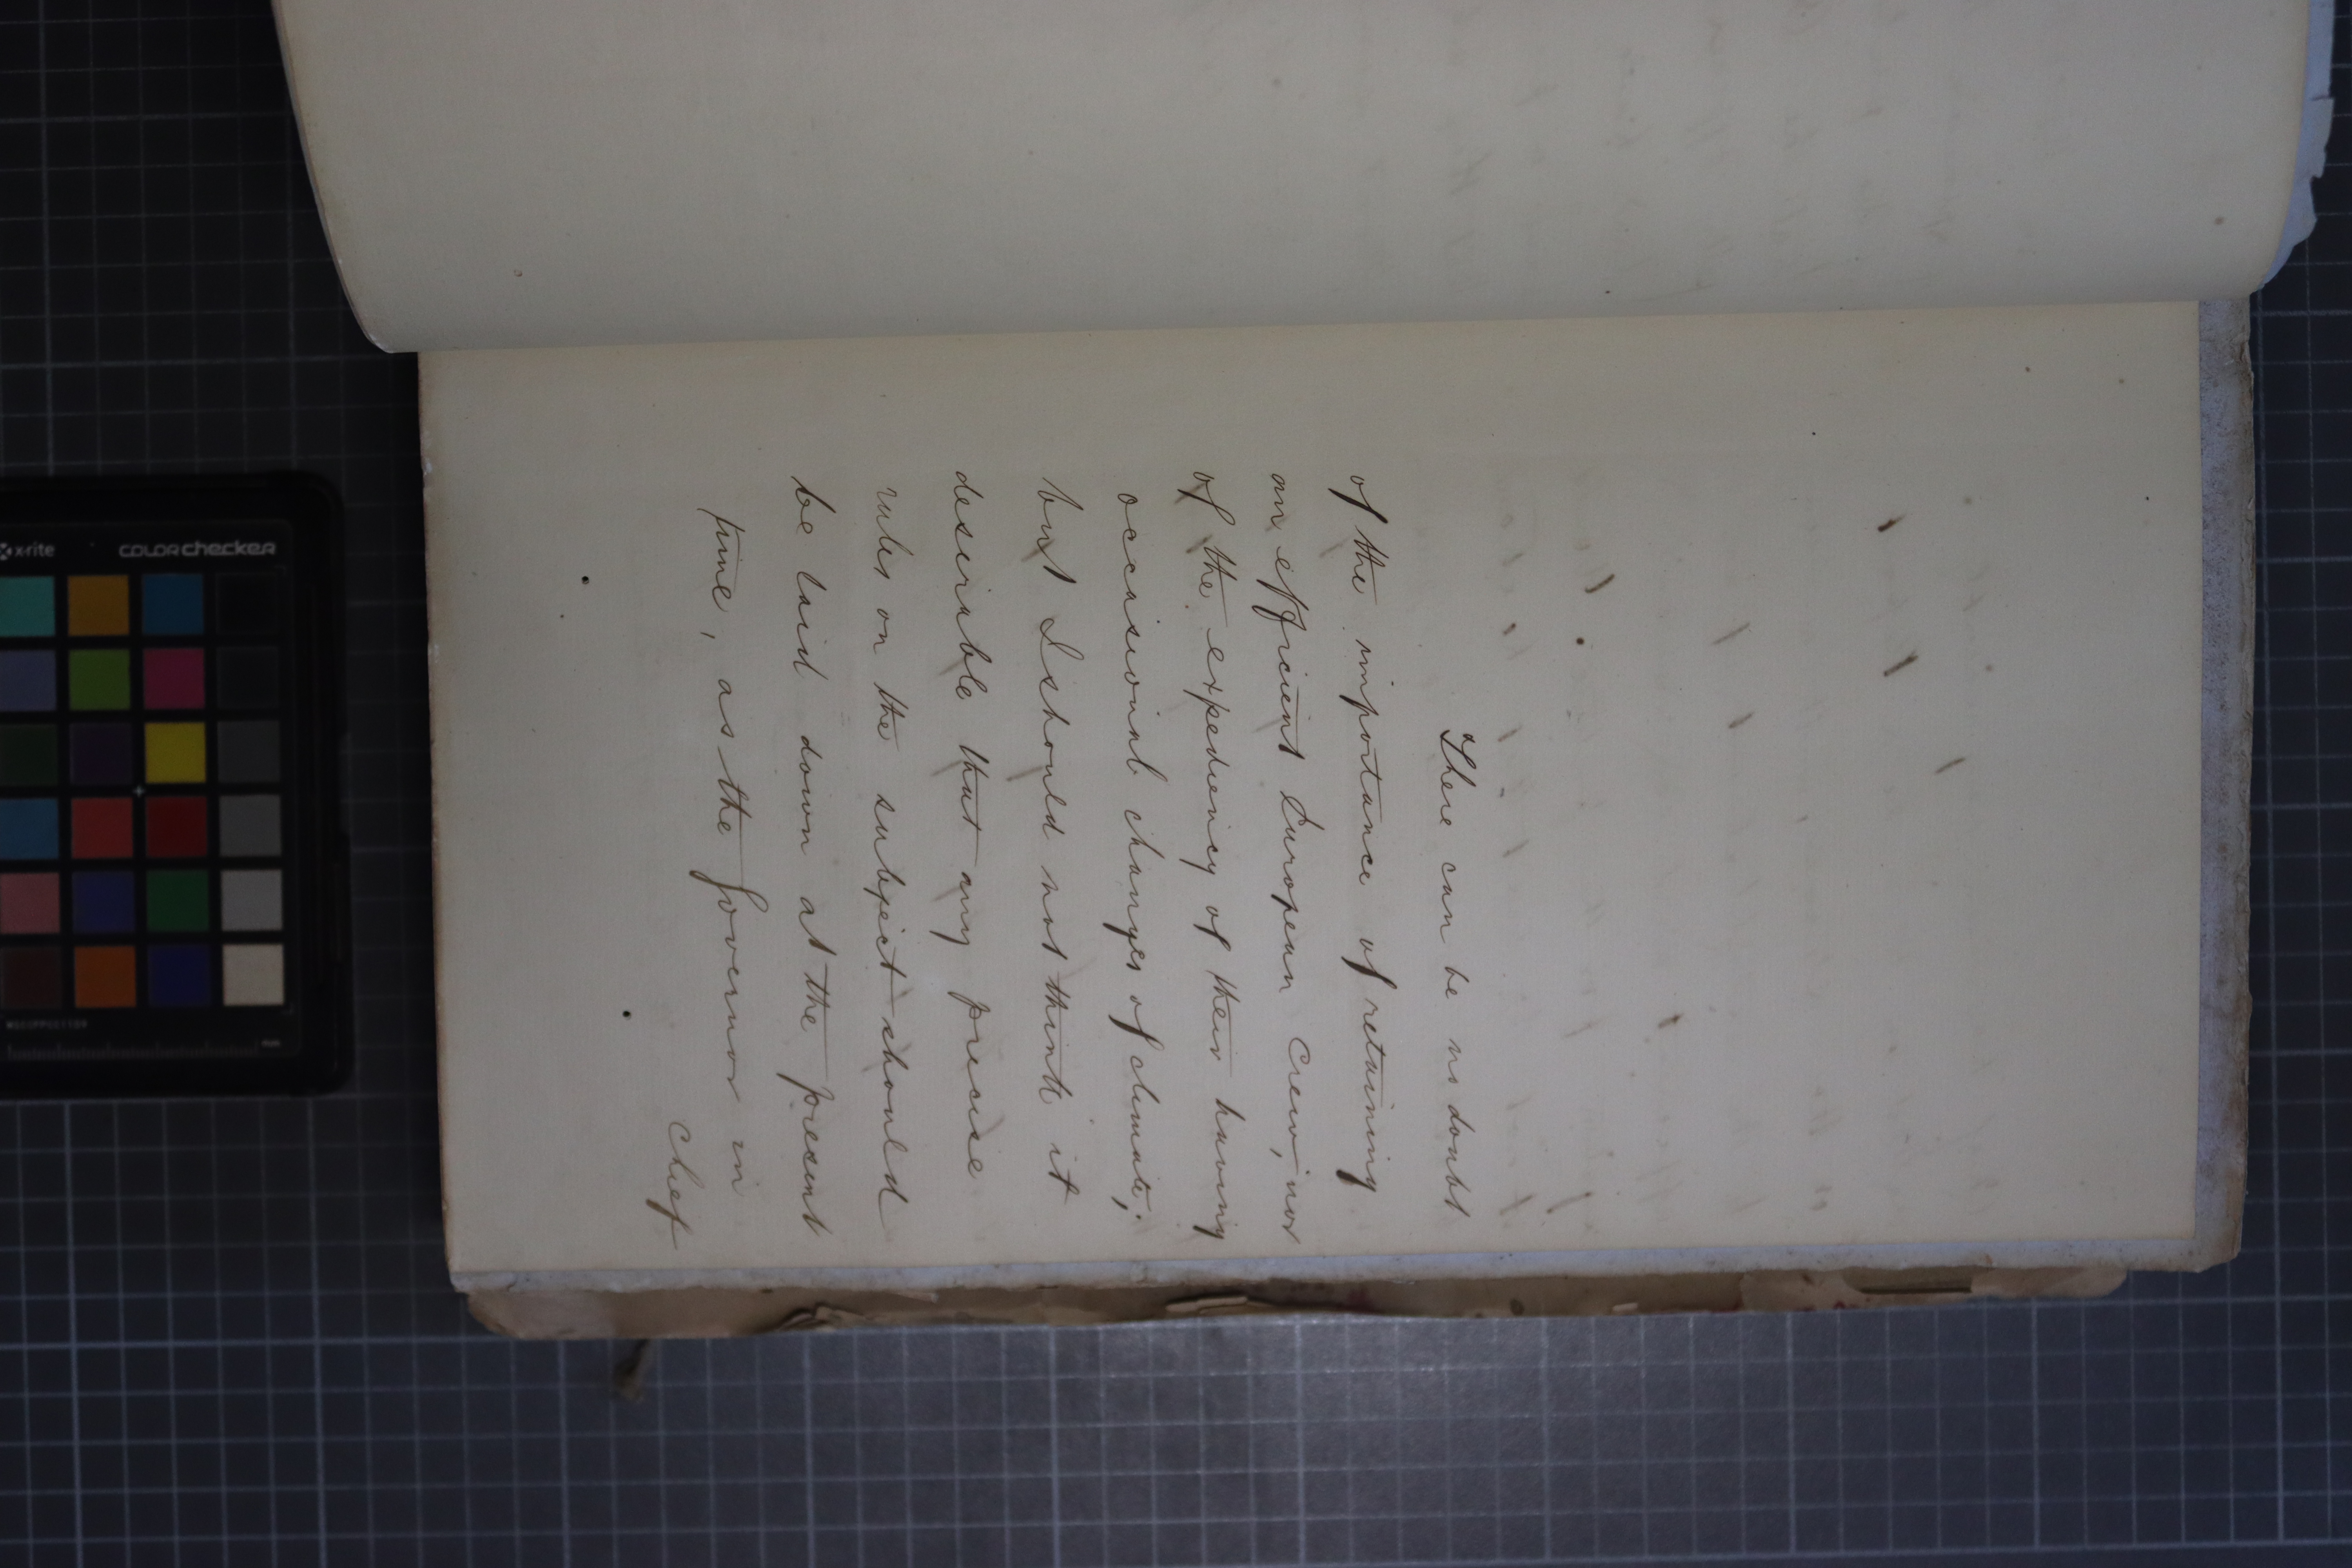 There can be no doubt
of the importance of retaining
an efficient European Crew, nor
of the expediency of their having
occasional changes of climate;
but I should not think it
desirable that any precise
rules on the subject should
be laid down at the present
time, as the Governor in
Chief
x-rite
colorchecker